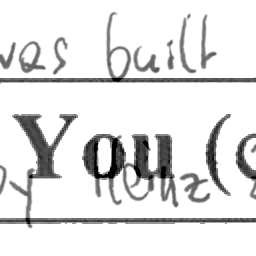 was built
You (
by Heinz